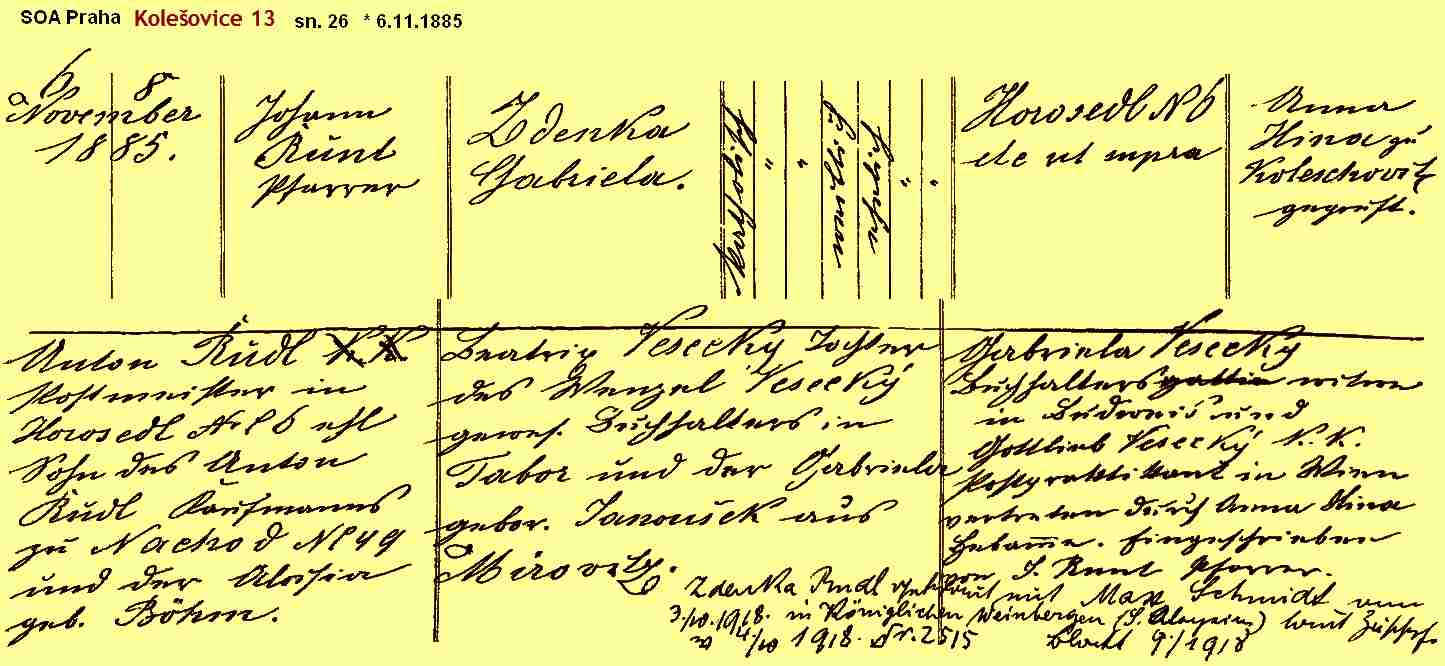 SOA Praha Kolešovice 13 sn. 26 * 6.11.1885
6 8
November
1885.
Johann
Rünt
Pfarrer
Zdenka
Gabriela.
katholisch
"
"
"
"
Horosedl N 6
etc ut supra
Anna
Hina zu
Koleschovitz
geprüft.
Anton Rüdl K. K.
Postmeister in
Horosedl No 6 ehl
Sohn des Anton
Rüdl Kaufmanns
zu Nachod No 49
und der Aloisia
geb. Böhm.
Beatrix Vesecký Tochter
des Wenzel Vesecký
gewes. Buchhalters in
Tabor und der Gabriela
gebor. Janoušek aus
Mirovitz.
Gabriela Vesecký
Buchhaltersgattin witwe
in Budweis und
Gottlieb Vesecký K. K.
Postpraktikant in Wien
vertreten durch Anna Hina
Hebamme. Eingeschrieben
von J. Runt Pfarrer.
Zdenka Rudl getraut mit Max Schmidt am
3./10. 1918. in Königlichen Weinbergen (S. Aloysius) laut Zuschr.
4./10 1918. Nr. 2515 9./1918